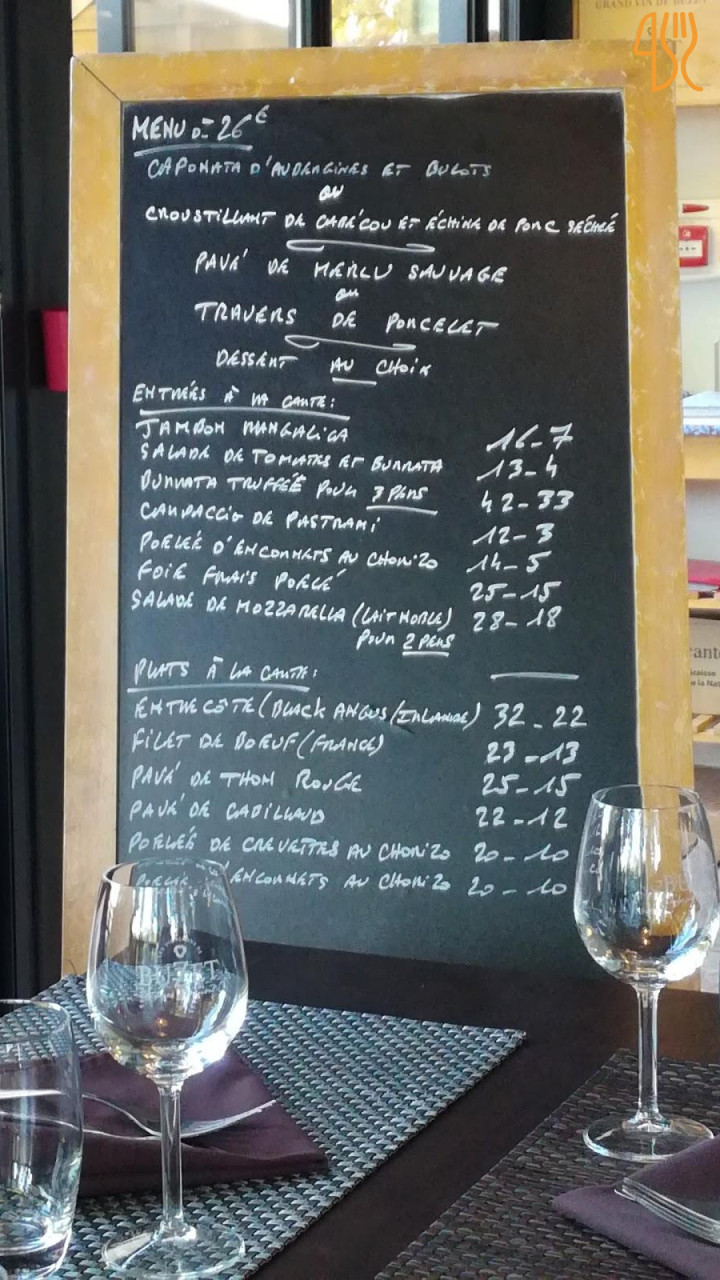 GRAND VIN DE BUZET
MENU DE 26€
CAPONATA D'AUBERGINES ET BULOTS
OU
CROUSTILLANT DE CABÉCOU ET ÉCHINE DE PORC SÉCHÉE
PAVÉ DE MERLU SAUVAGE
OU
TRAVERS DE PORCELET
DESSERT AU CHOIX
ENTRÉES À LA CARTE:
JAMBON MANGALICA 16-7
SALADE DE TOMATES ET BURRATA 13-4
BURRATA TRUFFÉE POUR 3 PERS 42-33
CARPACCIO DE PASTRAMI 12-3
POELÉE D'ENCORNETS AU CHORIZO 14-5
FOIE FRAIS POELÉ 25-15
SALADE DE MOZZARELLA (LAIT NOBLE) 28-18
POUR 2 PERS
PLATS À LA CARTE:
ENTRECÔTE (BLACK ANGUS/IRLANDE) 32-22
FILET DE BOEUF (FRANCE) 23-13
PAVÉ DE THON ROUGE 25-15
PAVÉ DE CABILLAUD 22-12
POELÉE DE CREVETTES AU CHORIZO 20-10
POELÉE D'ENCORNETS AU CHORIZO 20-10
BUZET